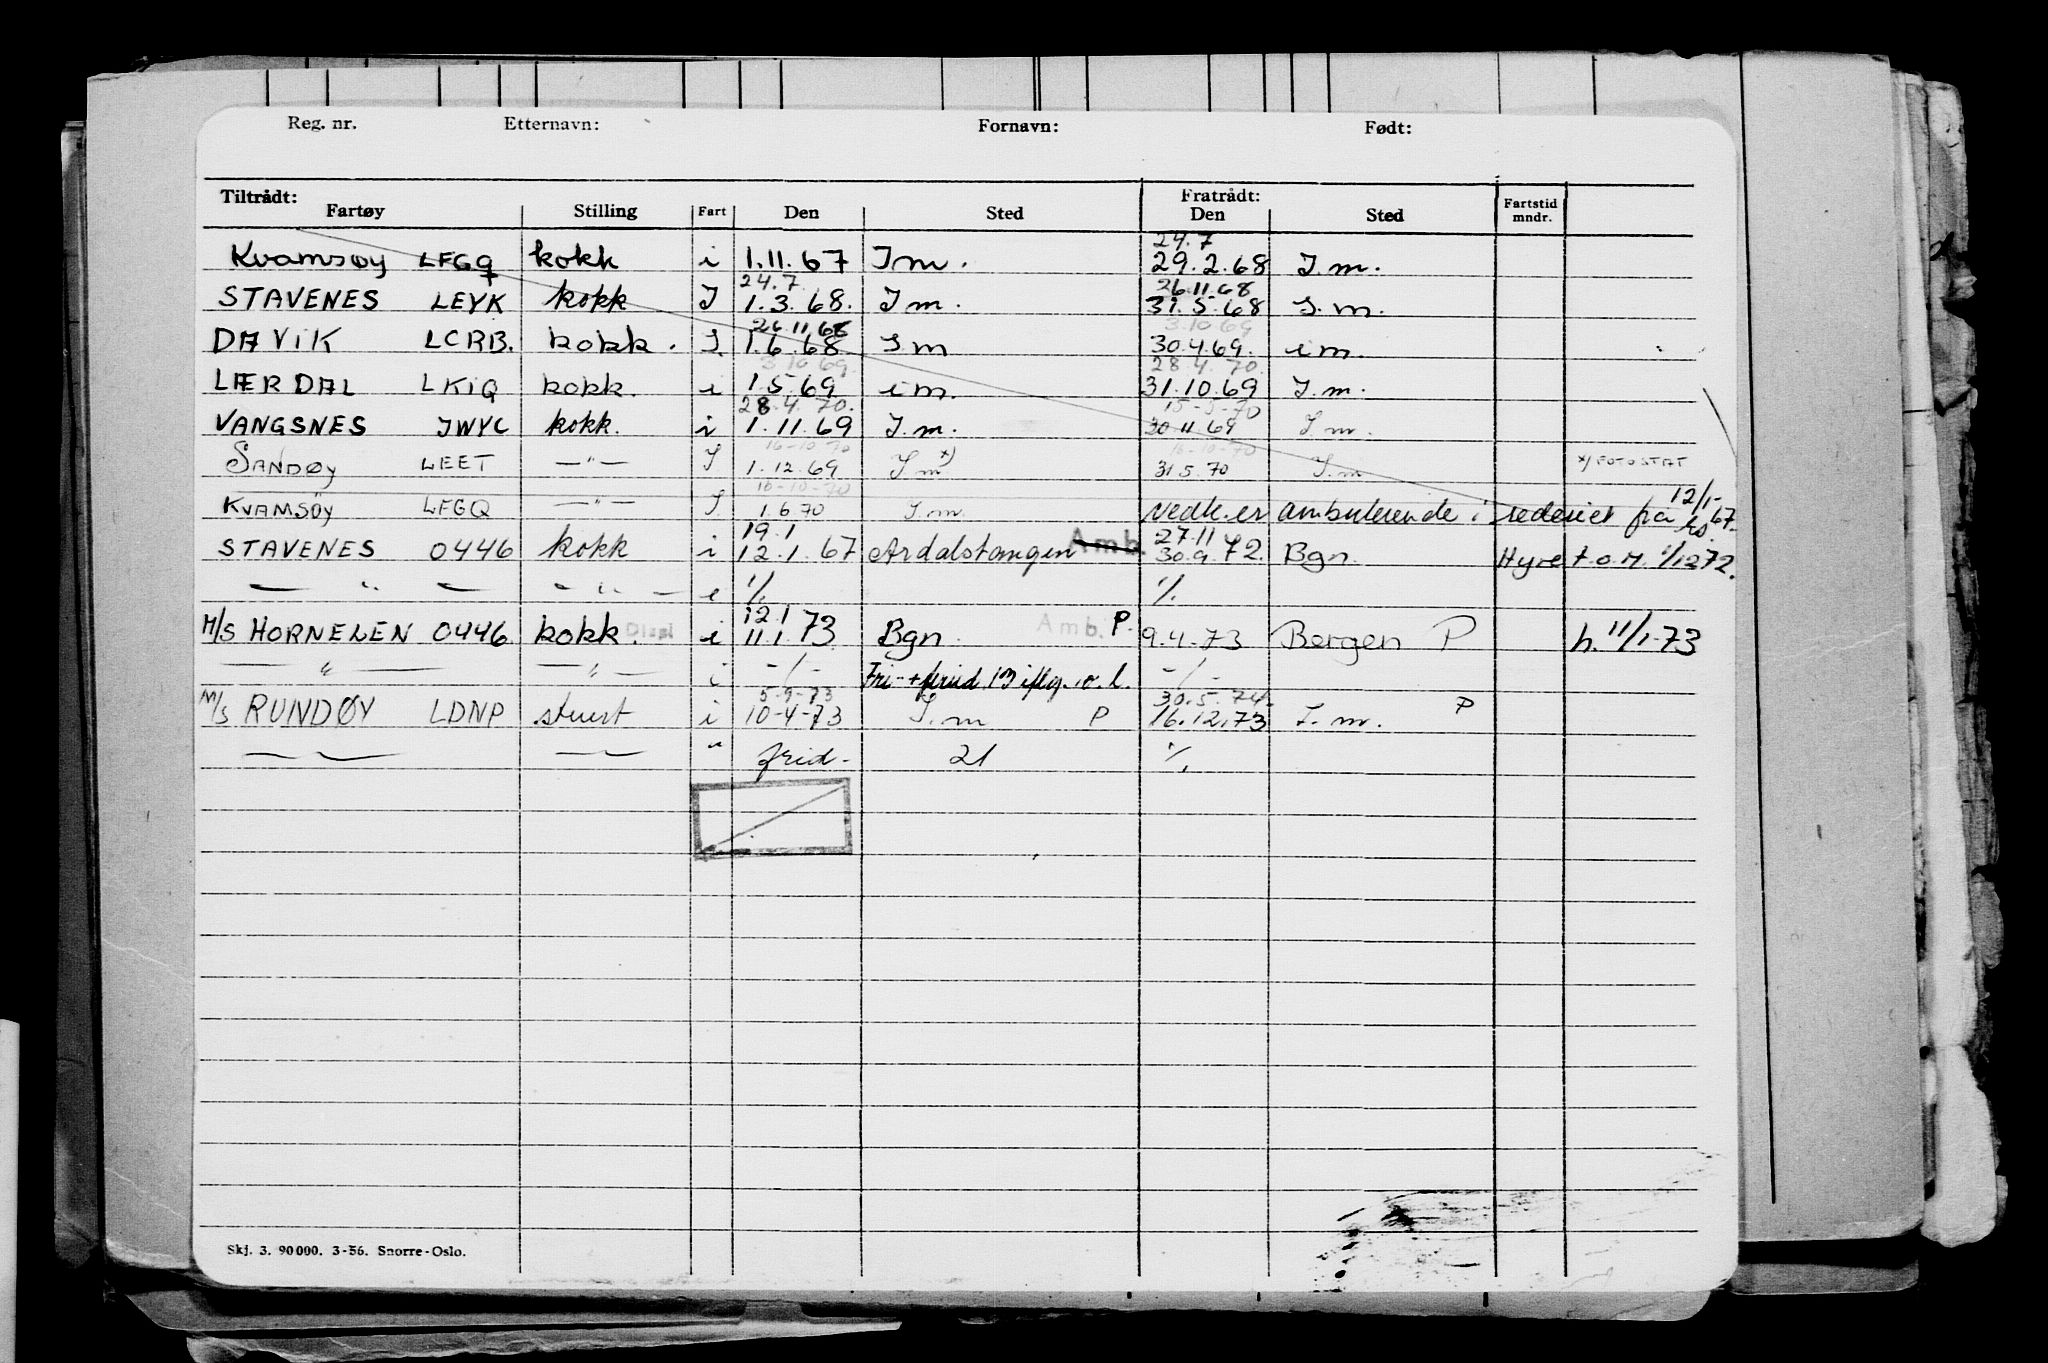 Reg. nr. Etternavn: Fornavn: Født:
Tiltrådt: Fratrådt:
Fartøy Stilling Fart Den Sted Den Sted Fartstid mndr.
24.7
Kvamsøy LFGQ kokk i 1.11.67 I m. 29.2.68 I.m.
24.7 26.11.68
STAVENES LEYK kokk I 1.3.68. I m. 31.5.68 I.m.
26.11.68 3.10.69
DAVIK LCRB. kokk. I. 1.6.68 I m 30.4.69. i m.
3.10.69. 28.4.70.
LÆRDAL LKIQ kokk. i 1.5.69 i m. 31.10.69 I.m.
28.4.70. 15-5-70
VANGSNES JWYC kokk. i 1.11.69 I.m. 30.11.69 I.m.
16-10-70 16-10-70
SANDØY LEET —"— I 1.12.69 I m x) 31.5.70 I.m x) FOTOSTAT
16-10-70
KVAMSÖY LFGQ —"— I 1.6.70 I.m. Vedk. er ambulerende i rederiet fra 12/1-67.
19.1 27.11
STAVENES 0446 kokk i 12.1.67 Årdalstangen Amb. 30.9.72. Bgn. Hyre t.o.m. 1/12 72.
— " — — " — e ·/. ·/.
12.1
M/S HORNELEN 0446 kokk. i 11.1.73 Bgn. Amb. P. 9.4.73 Bergen P h. 11/1-73
— " — —"— i -/- Fri- -/-
5-9-73 30.5.74.
M/S RUNDØY LDNP stuert i 10-4-73 I.m P 16.12.73 I.m. P
— " — — " — " frid- 21 ·/.
Skj. 3. 90 000. 3-56. Snorre-Oslo.